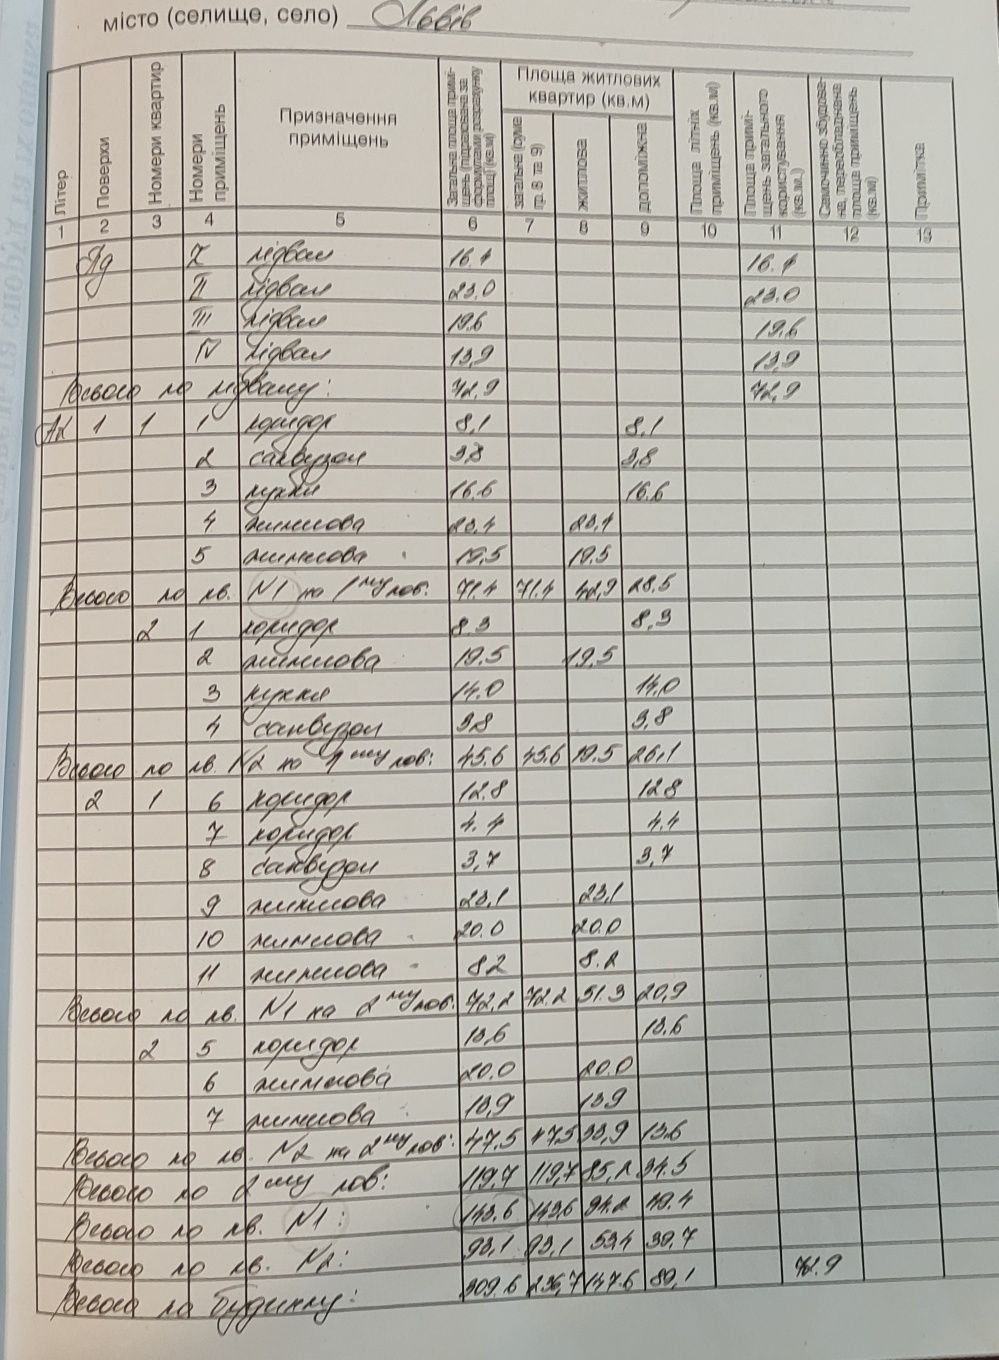 місто (селище, село) Львів
Літер Поверхи Номери квартир Номери приміщень Призначення приміщень Загальна площа приміщень (підрахована за формулами розрахунку площ) (кв.м) Площа житлових квартир (кв.м) загальна (сума гр. 8 та 9) житлова допоміжна Площа літніх приміщень (кв.м) Площа приміщень загального користування (кв.м.) Самочинно збудована, переобладнана площа приміщень (кв.м) Примітка
1 2 3 4 5 6 7 8 9 10 11 12 13
Пд I підвал 16.4 16.4
II підвал 23.0 23.0
III підвал 19.6 19.6
IV підвал 13,9 13,9
Всього по підвалу: 72,9 72,9
А2 1 1 1 коридор 8,1 8,1
2 санвузол 3,8 3,8
3 кухня 16.6 16.6
4 житлова 23,4 23,4
5 житлова 19,5 19,5
Всього по кв. N1 на 1му пов: 71.4 71.4 42,9 28,5
2 1 коридор 8.3 8,3
2 житлова 19.5 19,5
3 кухня 14.0 14,0
4 санвузол 3,8 3,8
Всього по кв. N2 на 1му пов: 45.6 45.6 19.5 26,1
2 1 6 коридор 12.8 12.8
7 коридор 4.4 4,4
8 санвузол 3,7 3,7
9 житлова 23,1 23,1
10 житлова 20.0 20.0
11 житлова 8.2 8.2
Всього по кв. N1 на 2му пов: 72,2 72.2 51.3 20,9
2 5 коридор 13,6 13.6
6 житлова 20.0 20.0
7 житлова 13,9 13,9
Всього по кв. N2 на 2му пов: 47.5 47,5 33,9 13.6
Всього по 2му пов: 119,7 119,7 85,2 34.5
Всього по кв. N1: 143.6 143,6 94.2 49.4
Всього по кв. N2: 93,1 93,1 53,4 39,7
Всього по будинку: 309.6 236,7 147.6 89,1 72.9